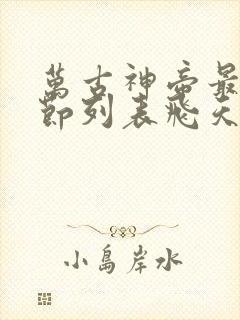 萬古神帝最
節列表飛天
小島岸水